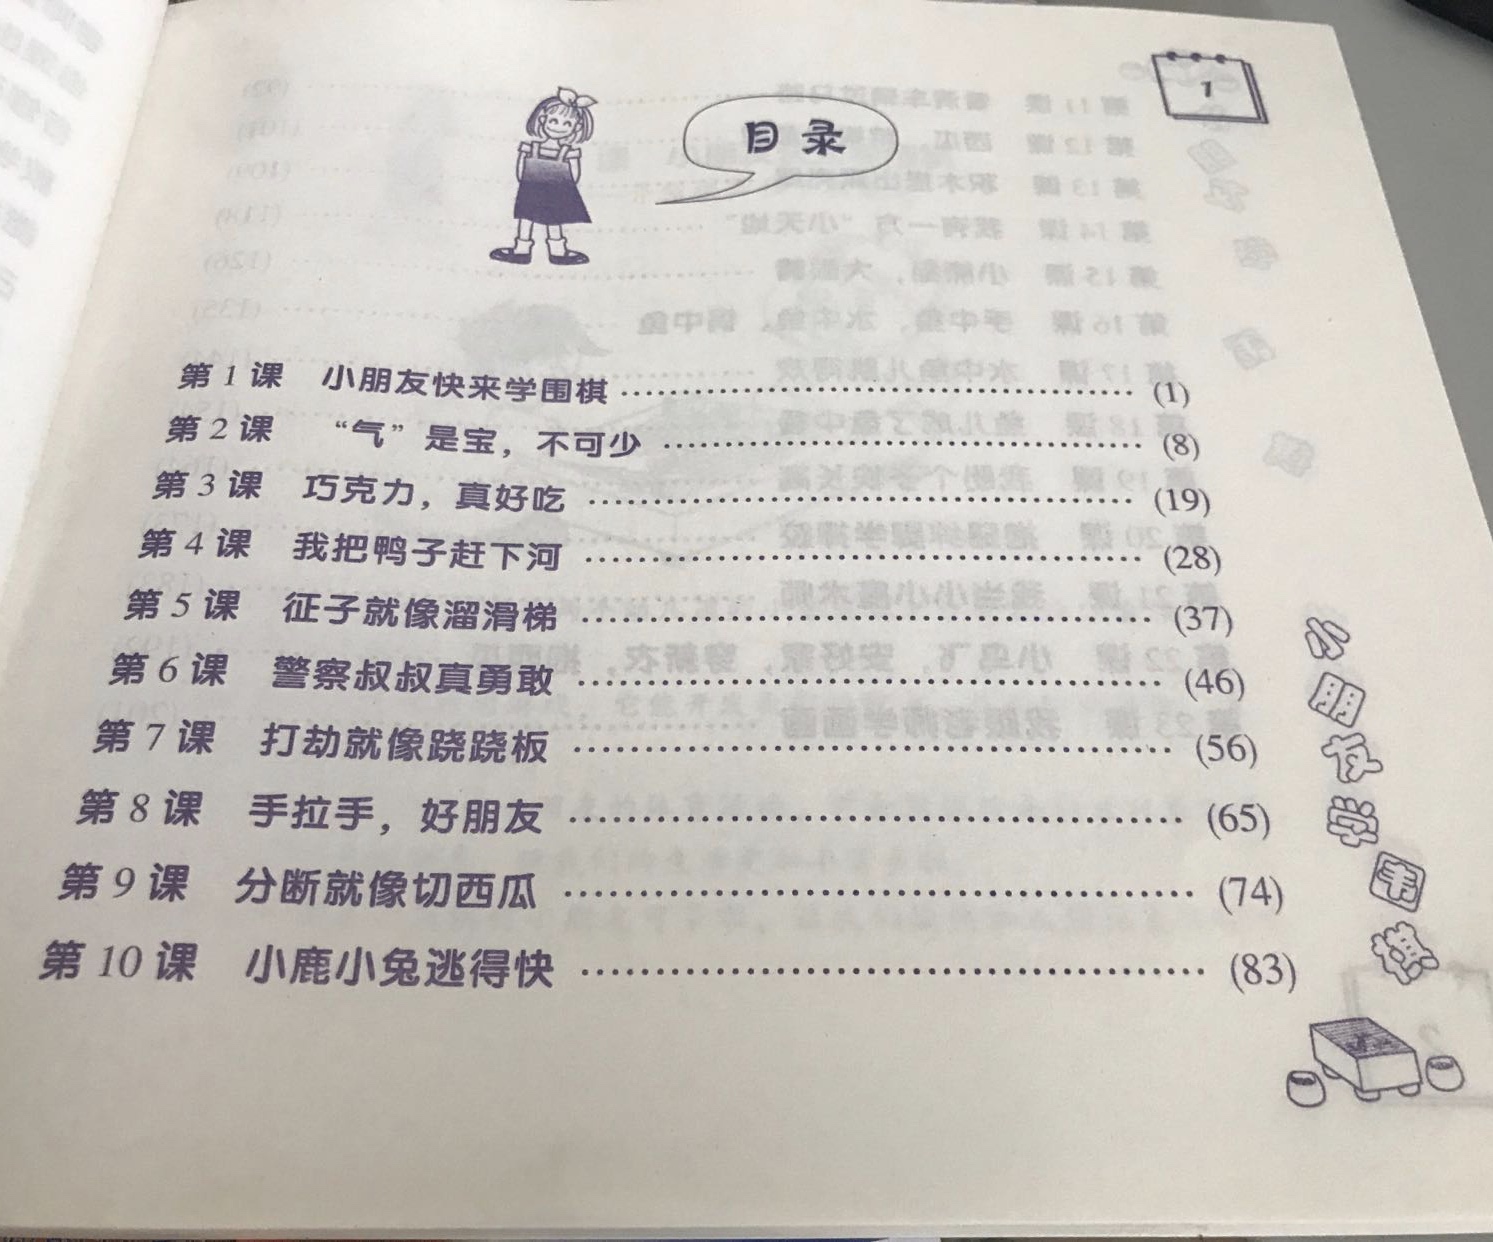 1
目录
第1课 小朋友快来学围棋 …… (1)
第2课 “气”是宝，不可少 …… (8)
第3课 巧克力，真好吃 …… (19)
第4课 我把鸭子赶下河 …… (28)
第5课 征子就像溜滑梯 …… (37)
第6课 警察叔叔真勇敢 …… (46)
第7课 打劫就像跷跷板 …… (56)
第8课 手拉手，好朋友 …… (65)
第9课 分断就像切西瓜 …… (74)
第10课 小鹿小兔逃得快 …… (83)
小朋友学围棋